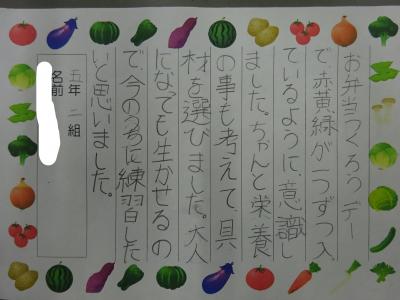 お弁当つくろうデー
で、赤黄緑が一つずつ入っ
ているように、意識し
ました。ちゃんと栄養
の事も考えて、具
材を選びました。大人
になっても生かせるの
で、今のうちに練習した
いと思いました。
五年 二 組
名前